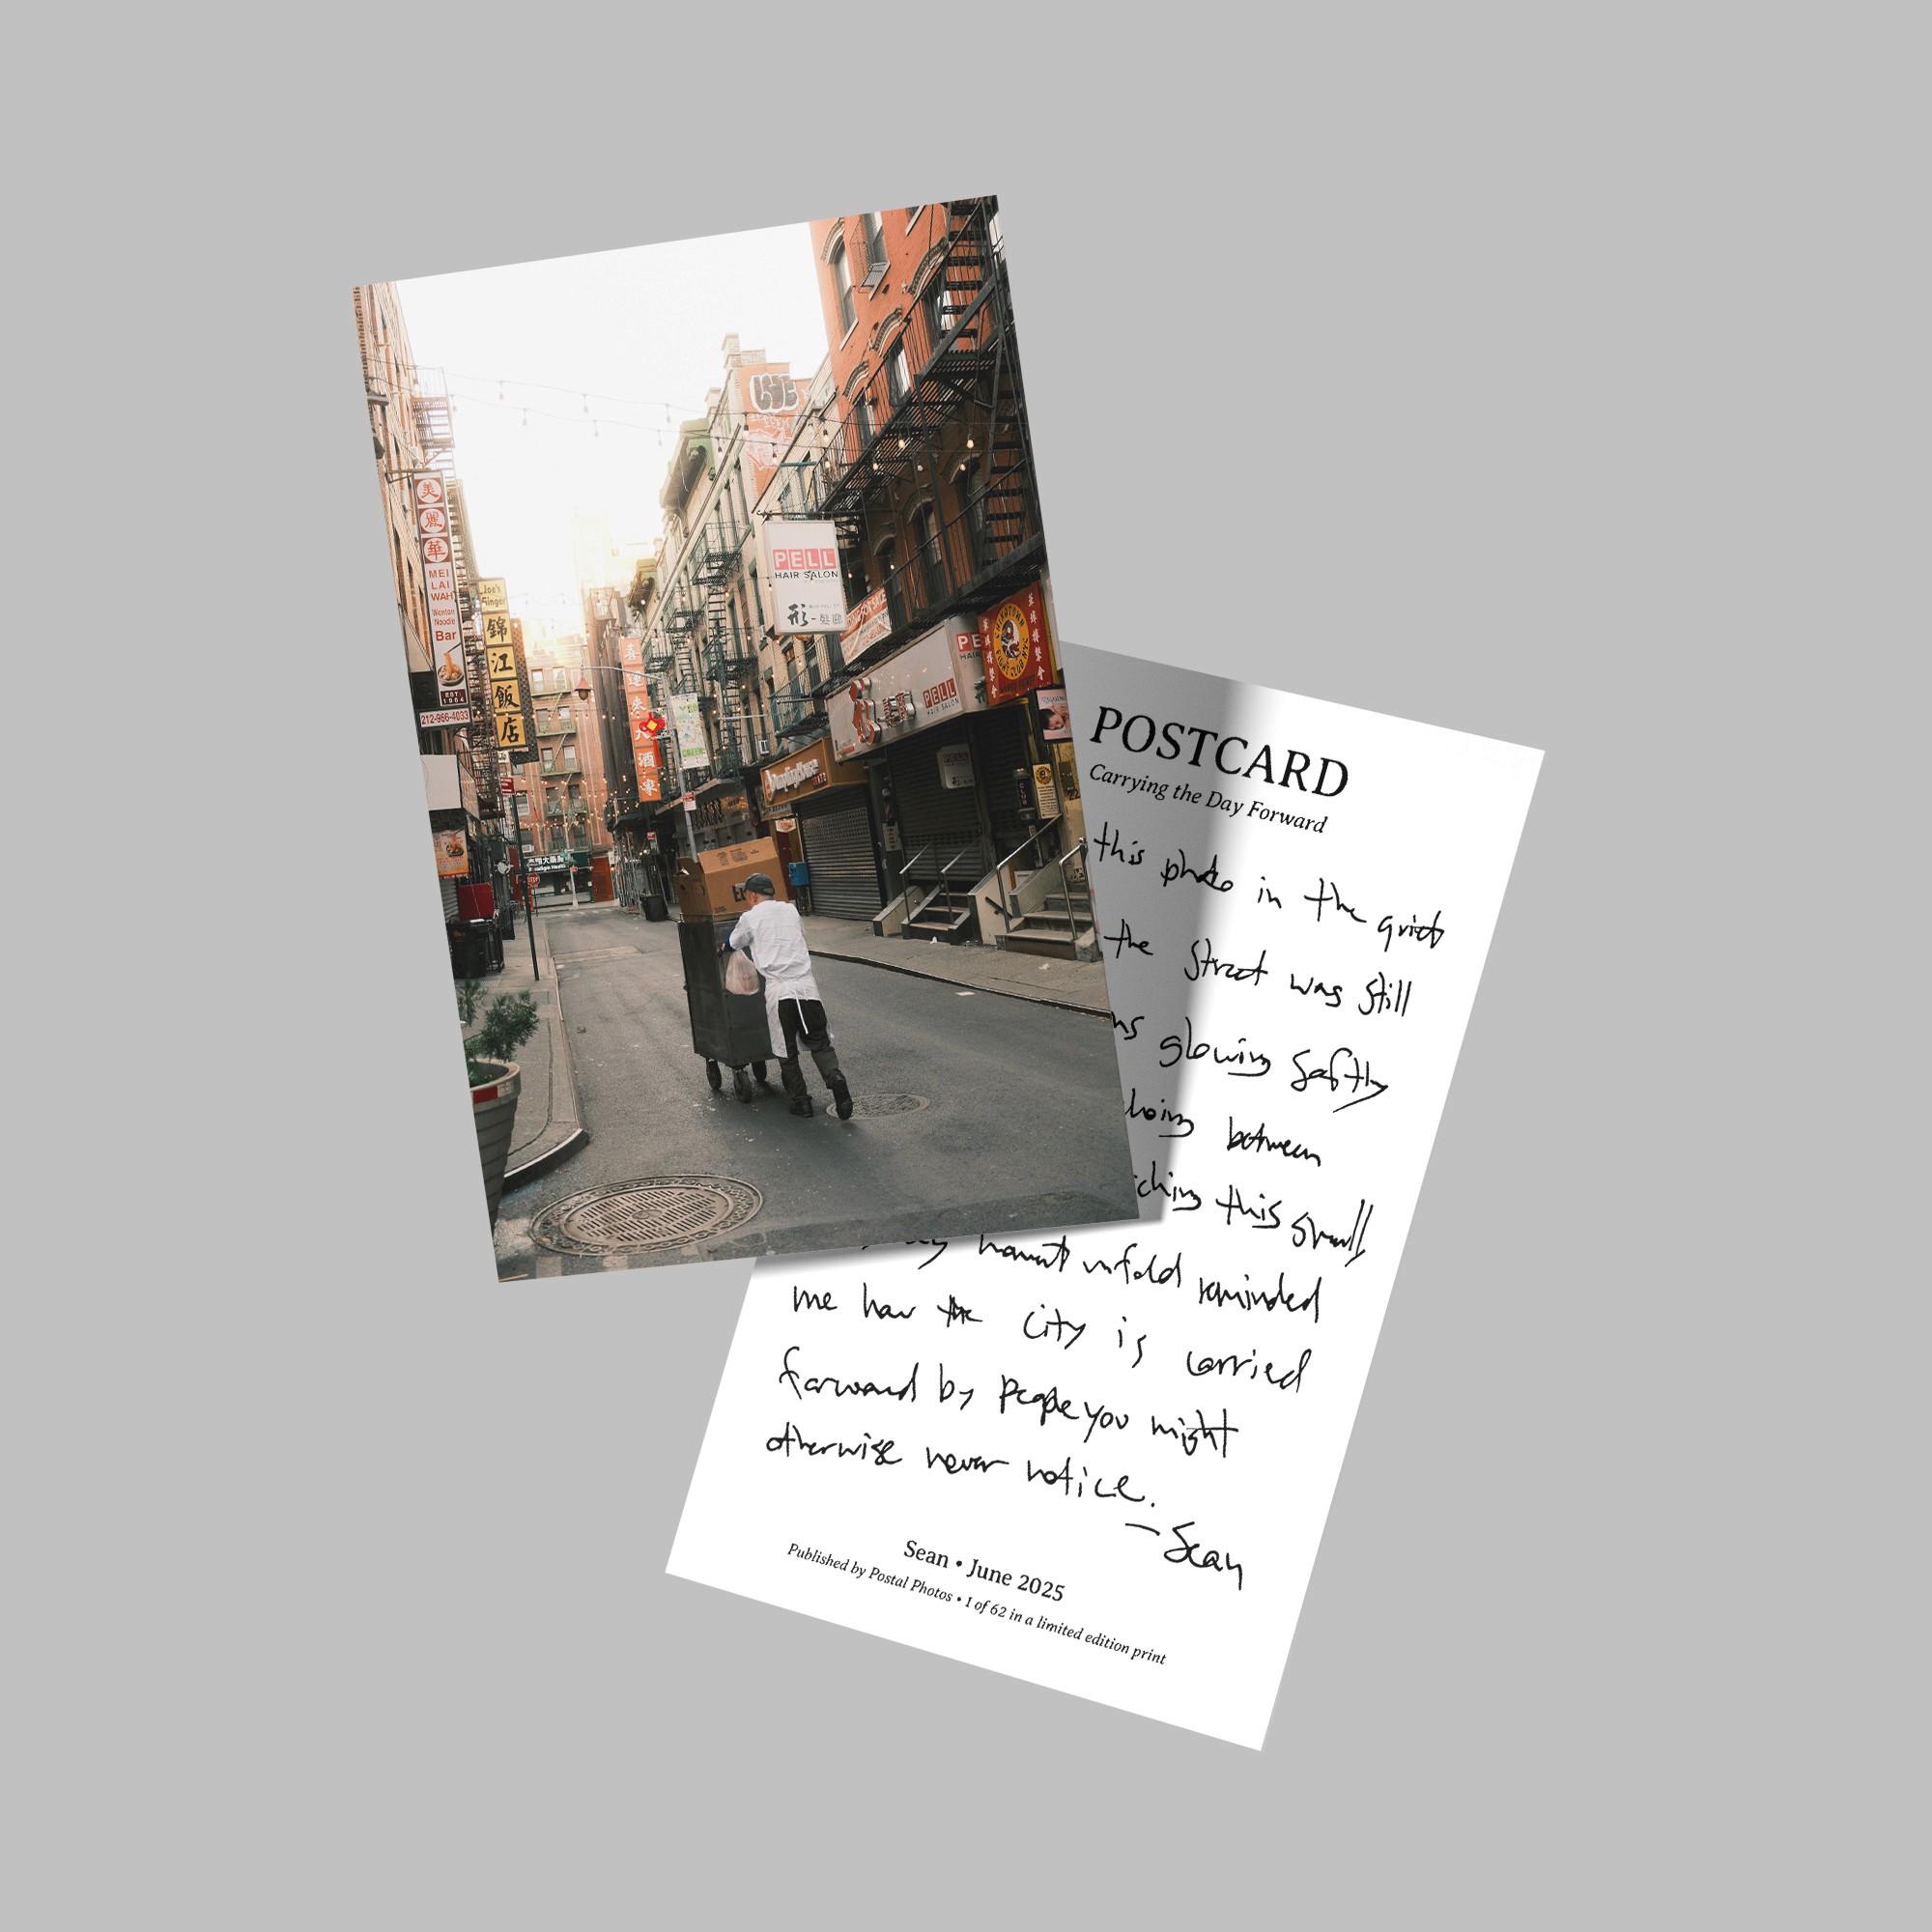 美
麗
華
MEI
LAI
WAH
Wonton
Noodle
Bar
EST.
1964
212-966-4033
Joe's
Ginger
錦
江
飯
店
PELL
HAIR SALON
形
PELL
HAIR SALON
PE
HAIR
CHINATOWN
FIGHT CLUB NYC
大
酒
POSTCARD
Carrying the Day Forward
this photo in the quiet
the street was still
glowing softly
between
this small
moment unfold reminded
me how the city is carried
forward by people you might
otherwise never notice.
– Sean
Sean • June 2025
Published by Postal Photos • 1 of 62 in a limited edition print